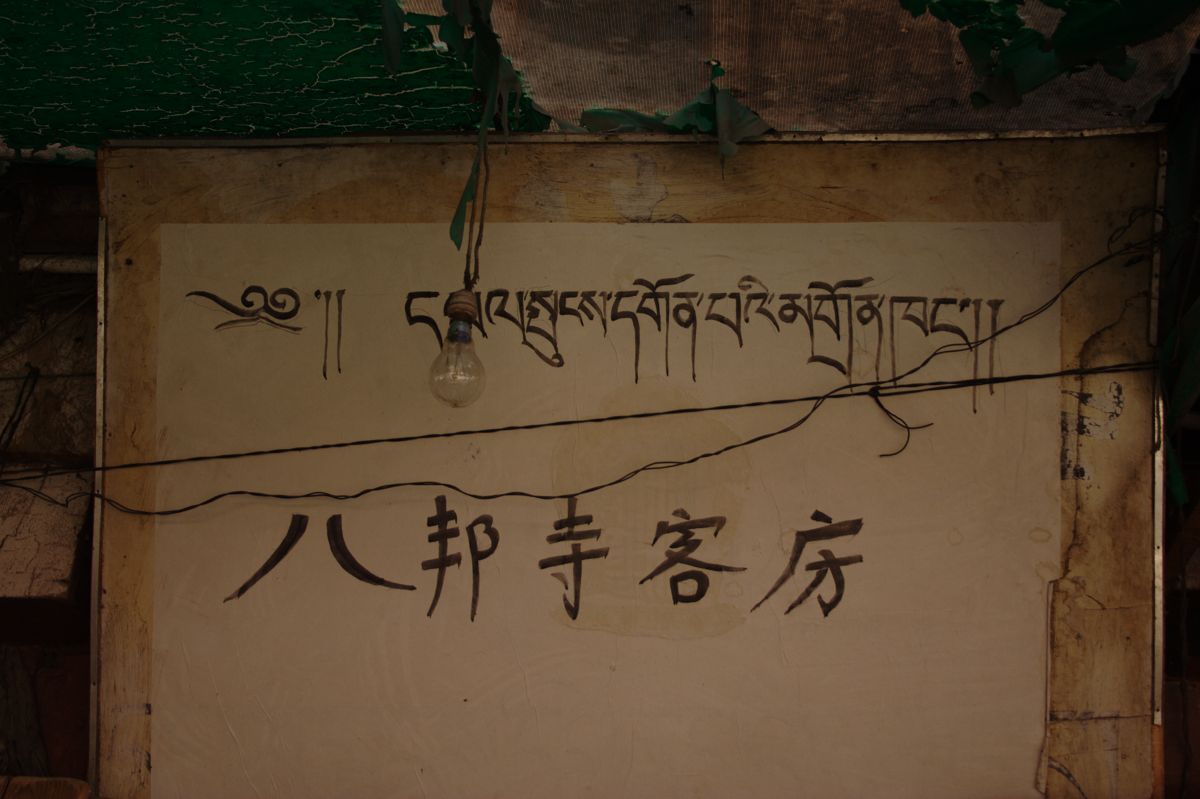 ༄༅།། དཔལ་སྤུངས་དགོན་པའི་མགྲོན་ཁང་།།
八邦寺客房